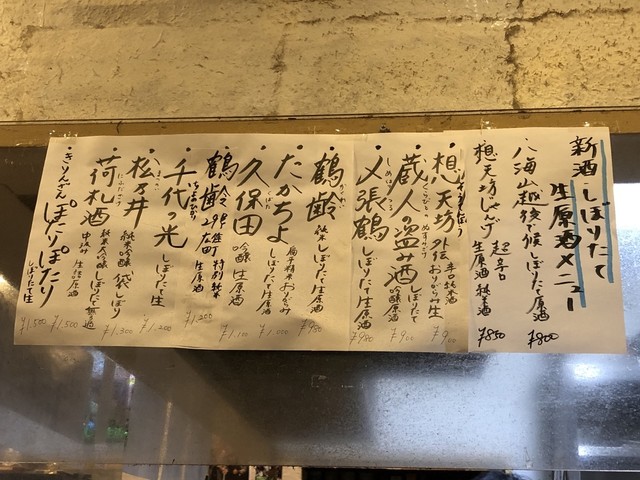 新酒・しぼりたて
生原酒メニュー
八海山越後で候しぼりたて原酒 ¥800
想天坊じゃんげ 超辛口
生原酒 純米酒 ¥850
・想天坊 外伝 おりがらみ生 ¥900
・蔵人の盗み酒 しぼりたて
吟醸原酒 ¥900
くらびとのぬすみざけ
・〆張鶴 しぼりたて生原酒 ¥980
しめはりつる
・鶴齢 純米しぼりたて生原酒 ¥980
かくれい
・たかちよ 扁平精米 おりがらみ
しぼりたて生原酒 ¥1,000
・久保田 吟醸 生原酒 ¥1,100
くぼた
・鶴齢 特別純米
生原酒 ¥1,200
・千代の光 しぼりたて生 ¥1,200
ちよのひかり
・松乃井 純米吟醸 袋しぼり ¥1,300
まつのい
・荷札酒 純米大吟醸 しぼりたて
中汲み 生詰原酒 ¥1,500
にふだざけ
・きりんざん ぽたりぽたり
しぼりたて生 ¥1,500